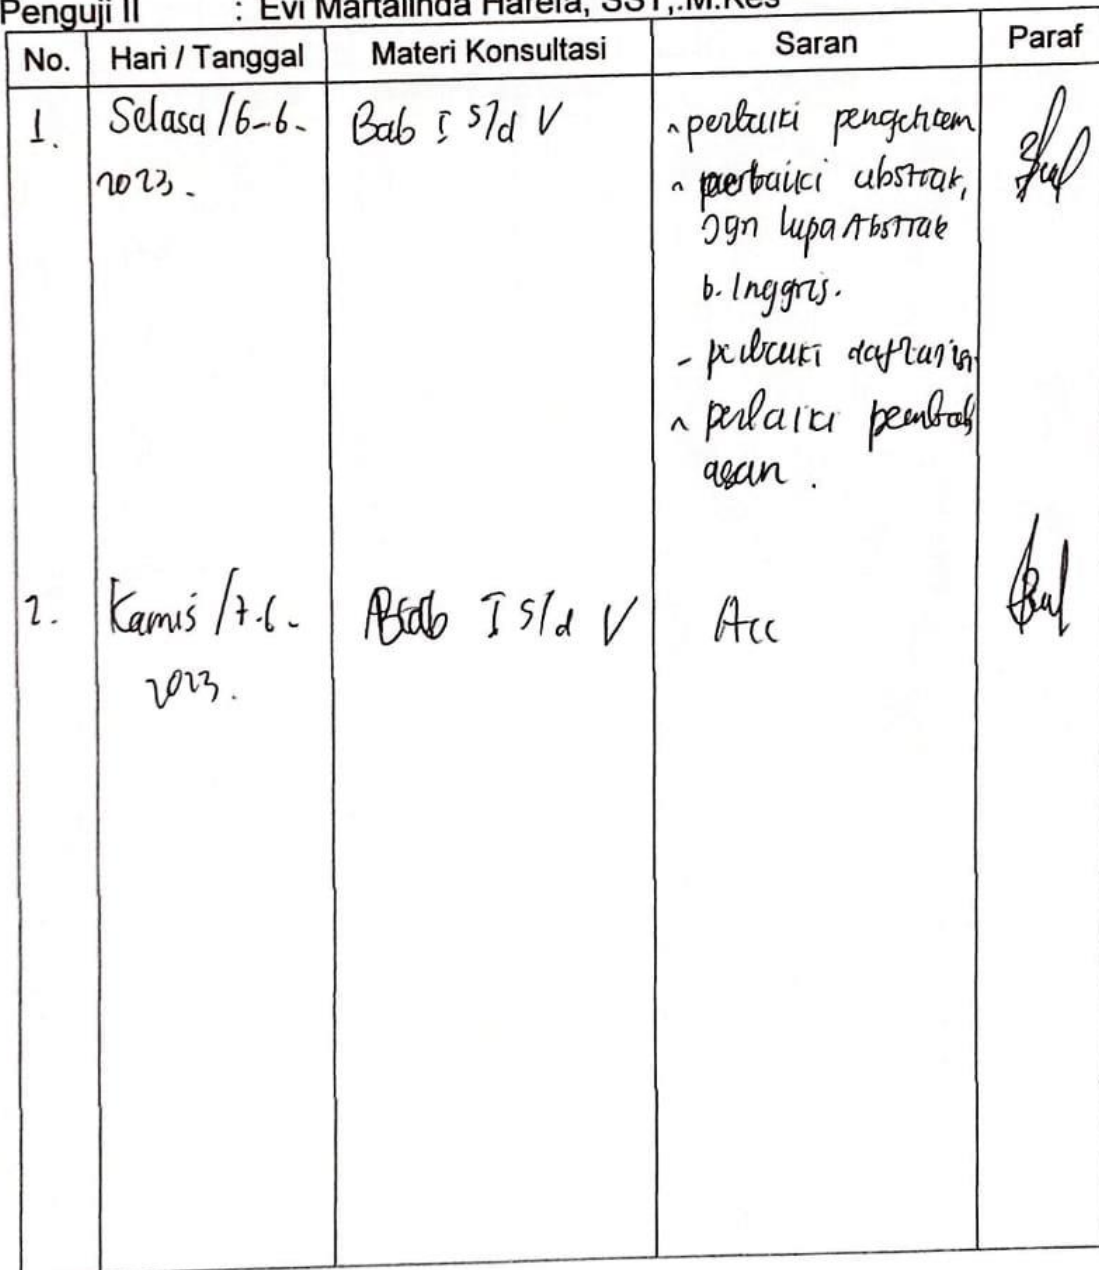 Penguji II : Evi Martalinda Harefa, SST,.M.Kes
No. Hari / Tanggal Materi Konsultasi Saran Paraf
1. Selasa / 6-6- Bab I s/d V - perbaiki
2023. - perbaiki abstrak,
Jgn lupa Abstrak
b. Inggris.
- perbaiki daftar isi
- perbaiki pembah
asan.
2. Kamis / 7-6- Bab I s/d V Acc
2023.